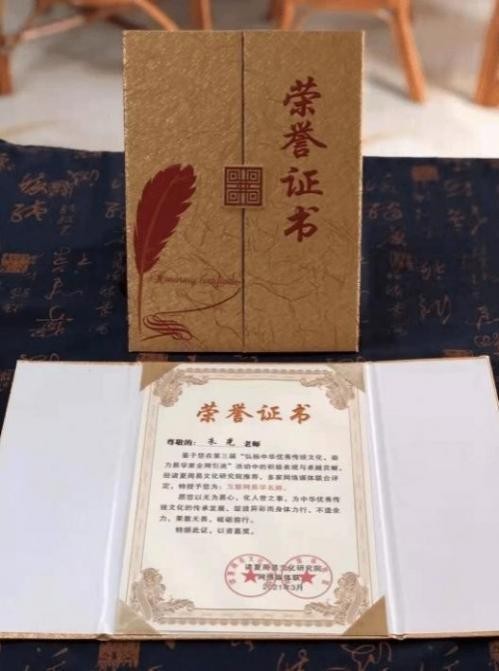 荣誉证书
Honorary Certificate
荣誉证书
尊敬的: 朱光 老师
鉴于您在第三届“弘扬中华优秀传统文化，助
力易学兼全网引流”活动中的积极表现与卓越贡献。
经诸夏周易文化研究院推荐、多家网络媒体联合评
定，特授予您为：互联网易学名师。
愿您以无为易心，化人世之事，为中华优秀传
统文化的传承发展，绽放异彩而身体力行、不遗余
力、果敢无畏，砥砺前行。
特颁此证，以资嘉奖。
诸夏周易文化研究院
网络媒体联
2021年3月